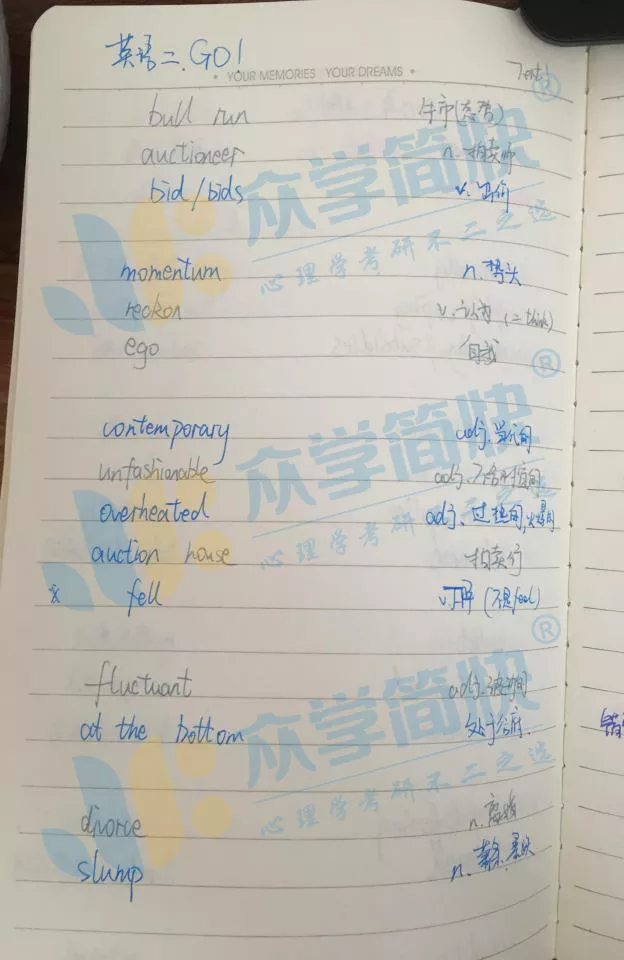 英语二. GO!
YOUR MEMORIES YOUR DREAMS
Text1
bull run 牛市(态势)
auctioneer n. 拍卖师
bid/bids v. 出价
momentum n. 势头
reckon v. 认为 (=think)
ego 自我
contemporary adj. 当代的
unfashionable adj. 不合时宜的
overheated adj. 过热的,火爆的
auction house 拍卖行
* fell v. 下降 (不是feel)
fluctuant adj. 波动的
at the bottom 处于谷底.
divorce n. 离婚
slump n. 萧条.暴跌
众学简快®
心理学考研不二之选
众学简快®
心理学考研不二之选
众学简快®
心理学考研不二之选